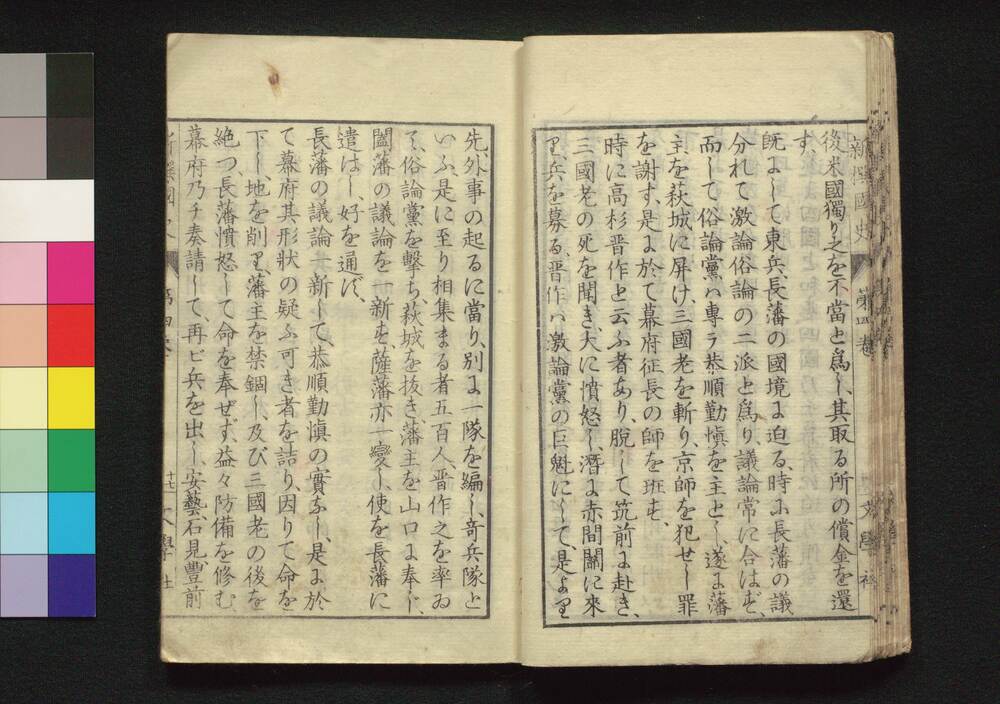 新撰國史
第四卷
文學社
後米國獨り之を不當と爲し、其取る所の償金を還
す、
既にして東兵、長藩の國境に迫る、時に長藩の議
分れて激論俗論の二派と爲り、議論常に合はず、
而して俗論黨ハ專ラ恭順勤愼を主とし、遂に藩
主を萩城に屏け、三國老を斬り、京師を犯せし罪
を謝す、是に於て幕府征長の師を班す、
時に高杉晋作と云ふ者あり、脱して筑前に赴き、
三國老の死を聞き、大に憤怒し、潛に赤間關に來
り、兵を募る、晋作ハ激論黨の巨魁にして是より
先、外事の起るに當り、別に一隊を編し、奇兵隊と
いふ、是に至り相集まる者五百人、晋作之を率ゐ
て、俗論黨を擊ち、萩城を抜き、藩主を山口に奉じ、
闔藩の議論を一新す、薩藩亦一變し、使を長藩に
遣はし、好を通ず、
長藩の議論一新して、恭順勤愼の實なし、是に於
て幕府其形狀の疑ふ可き者を詰り、因りて命を
下し、地を削り、藩主を禁錮し、及び三國老の後を
絶つ、長藩憤怒して命を奉ぜず、益々防備を修む、
幕府乃チ奏請して、再ビ兵を出し、安藝石見豐前
新撰國史
第四卷
文學社